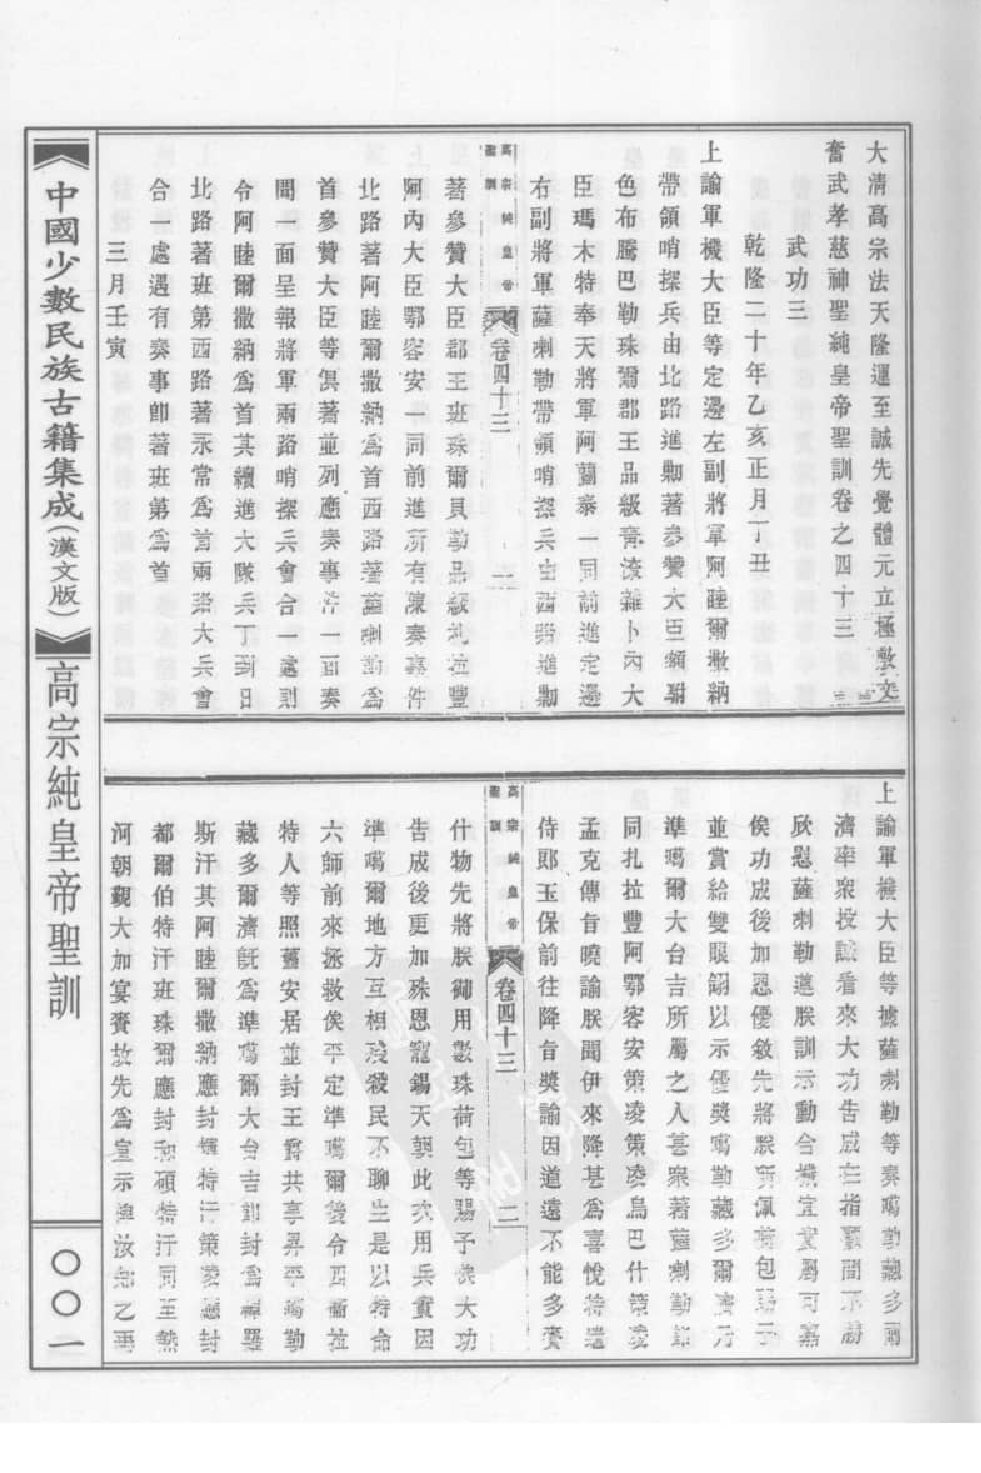 大清高宗法天隆運至誠先覺體元立極敷文
奮武孝慈神聖純皇帝聖訓卷之四十三
武功三
乾隆二十年乙亥正月丁丑
上諭軍機大臣等定邊左副將軍阿睦爾撒納
帶領哨探兵由北路進勦著參贊大臣額駙
色布騰巴勒珠爾郡王品級青滾雜卜內大
臣瑪木特奉天將軍阿蘭泰一同前進定邊
右副將軍薩喇勒帶領哨探兵由西路進勦
高宗純皇帝聖訓 卷四十三 一
著參贊大臣郡王班珠爾貝勒品級札拉豐
阿內大臣鄂容安一同前進所有陳奏事件
北路著阿睦爾撒納為首西路著薩喇勒為
首參贊大臣等俱著並列應奏事件一面奏
聞一面呈報將軍兩路哨探兵會合一處則
令阿睦爾撒納為首其續進大隊兵丁到日
北路著班第西路著永常為首兩路大兵會
合一處遇有奏事卽著班第為首
三月壬寅
上諭軍機大臣等據薩喇勒等奏噶勒藏多爾
濟率衆投誠看來大功告成在指顧間不勝
欣慰薩喇勒遵朕訓示動合機宜實屬可嘉
俟功成後加恩優敘先將朕所佩荷包賜予
並賞給雙眼翎以示優獎噶勒藏多爾濟乃
準噶爾大台吉所屬之人甚衆著薩喇勒等
同扎拉豐阿鄂容安策凌策凌烏巴什策凌
孟克傳旨曉諭朕聞伊來降甚為喜悅特遣
侍郎玉保前往降旨獎諭因道遠不能多賚
高宗純皇帝聖訓 卷四十三 二
什物先將朕御用數珠荷包等賜予俟大功
告成後更加殊恩寵錫天朝此次用兵實因
準噶爾地方互相殘殺民不聊生是以特命
六師前來拯救俟平定準噶爾後令四衛拉
特人等照舊安居並封王爵共享昇平噶勒
藏多爾濟旣為準噶爾大台吉卽封為綽羅
斯汗其阿睦爾撒納應封輝特汗策凌應封
都爾伯特汗班珠爾應封和碩特汗同至熱
河朝覲大加宴賚故先為宣示俾汝知之再
《中國少數民族古籍集成(漢文版)》
高宗純皇帝聖訓
〇〇一